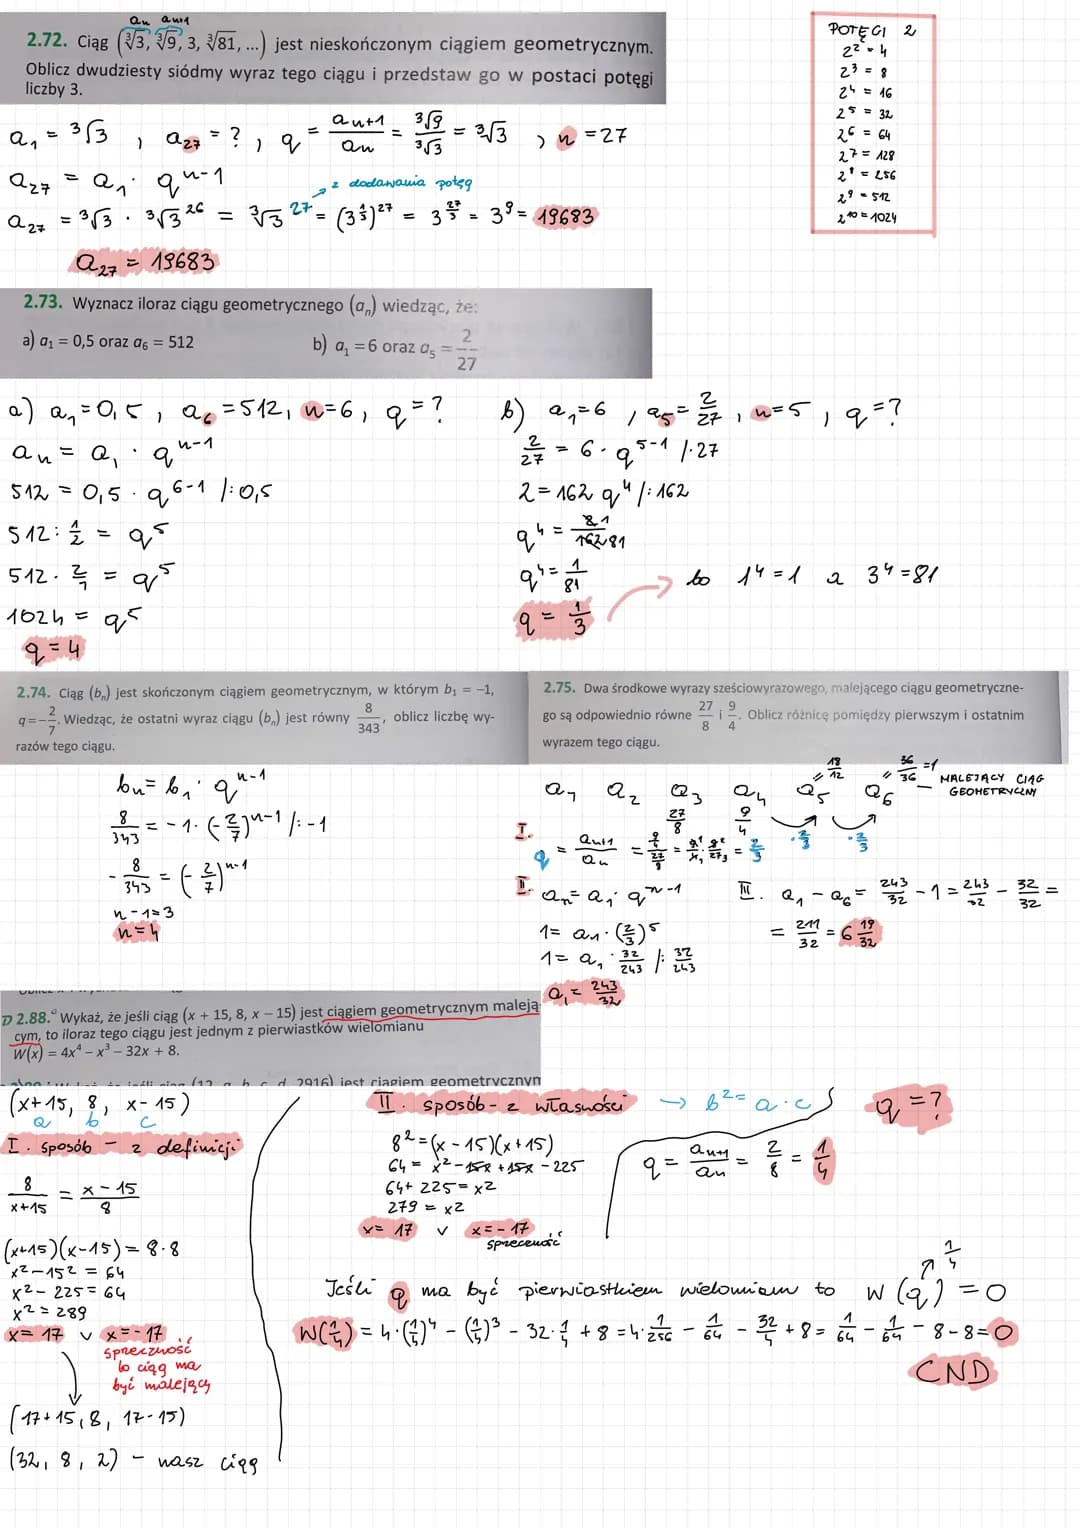 an an+1
2.72. Ciąg (∛3, ∛9, 3, ∛81, ...) jest nieskończonym ciągiem geometrycznym.
Oblicz dwudziesty siódmy wyraz tego ciągu i przedstaw go w postaci potęgi
liczby 3.
a₁ = ³√3 , a₂₇ = ? , q = an+1/an = ³√9/³√3 = ³√3 , n = 27
a₂₇ = a₁ · qⁿ⁻¹
z dodawania potęg
a₂₇ = ³√3 · ³√3²⁶ = ³√3²⁷ = (3^(1/3))²⁷ = 3^(27/3) = 3⁹ = 19683
a₂₇ = 19683
POTĘGI 2
2² = 4
2³ = 8
2⁴ = 16
2⁵ = 32
2⁶ = 64
2⁷ = 128
2⁸ = 256
2⁹ = 512
2¹⁰ = 1024
2.73. Wyznacz iloraz ciągu geometrycznego (aₙ) wiedząc, że:
a) a₁ = 0,5 oraz a₆ = 512 b) a₁ = 6 oraz a₅ = 2/27
a) a₁ = 0,5 , a₆ = 512, n=6, q = ?
an = a₁ · qⁿ⁻¹
512 = 0,5 · q⁶⁻¹ /:0,5
512 : 1/2 = q⁵
512 · 2/1 = q⁵
1024 = q⁵
q = 4
b) a₁=6 , a₅ = 2/27 , n=5 , q = ?
2/27 = 6 · q⁵⁻¹ /·27
2 = 162 q⁴ /:162
q⁴ = 2 1/162 81
q⁴ = 1/81
q = 1/3
bo 1⁴ = 1 a 3⁴ = 81
2.74. Ciąg (bₙ) jest skończonym ciągiem geometrycznym, w którym b₁ = −1,
q = −2/7. Wiedząc, że ostatni wyraz ciągu (bₙ) jest równy 8/343, oblicz liczbę wy-
razów tego ciągu.
bn = b₁ · qⁿ⁻¹
8/343 = −1 · (−2/7)ⁿ⁻¹ /:−1
−8/343 = (−2/7)ⁿ⁻¹
n−1=3
n=4
2.75. Dwa środkowe wyrazy sześciowyrazowego, malejącego ciągu geometryczne-
go są odpowiednio równe 27/8 i 9/4. Oblicz różnicę pomiędzy pierwszym i ostatnim
wyrazem tego ciągu.
18/12 36/36 =1
MALEJĄCY CIĄG
GEOMETRYCZNY
a₁ a₂ a₃ a₄ a₅ a₆
27/8 9/4 ·2/3 ·2/3
I. q = an+1/an = 9/4 / 27/8 = 9¹/4₁ · 8²/27₃ = 2/3
II. an = a₁ · qⁿ⁻¹
1 = a₁ · (2/3)⁵
1 = a₁ · 32/243 /: 32/243
a₁ = 243/32
III. a₁ − a₆ = 243/32 − 1 = 243/32 − 32/32 =
= 211/32 = 6 19/32
D 2.88. Wykaż, że jeśli ciąg (x + 15, 8, x − 15) jest ciągiem geometrycznym maleją
cym, to iloraz tego ciągu jest jednym z pierwiastków wielomianu
W(x) = 4x⁴ − x³ − 32x + 8.
d 2916) jest ciągiem geometrycznym
(x+15, 8, x−15)
a b c
I. sposób − z definicji
8/x+15 = x−15/8
(x+15)(x−15) = 8·8
x²−15² = 64
x²−225 = 64
x² = 289
x = 17 ∨ x = −17
sprzeczność
bo ciąg ma
być malejący
(17+15, 8, 17−15)
(32, 8, 2) − nasz ciąg
II. sposób − z własności → b² = a·c
8² = (x−15)(x+15)
64 = x²−15x+15x−225
64+225 = x²
279 = x²
x = 17 ∨ x = −17
sprzeczność
q = ?
q = an+1/an = 2/8 = 1/4
1/4
Jeśli q ma być pierwiastkiem wielomianu to W(q) = 0
W(1/4) = 4·(1/4)⁴ − (1/4)³ − 32·1/4 + 8 = 4·1/256 − 1/64 − 32/4 + 8 = 1/64 − 1/64 − 8−8=0
CND